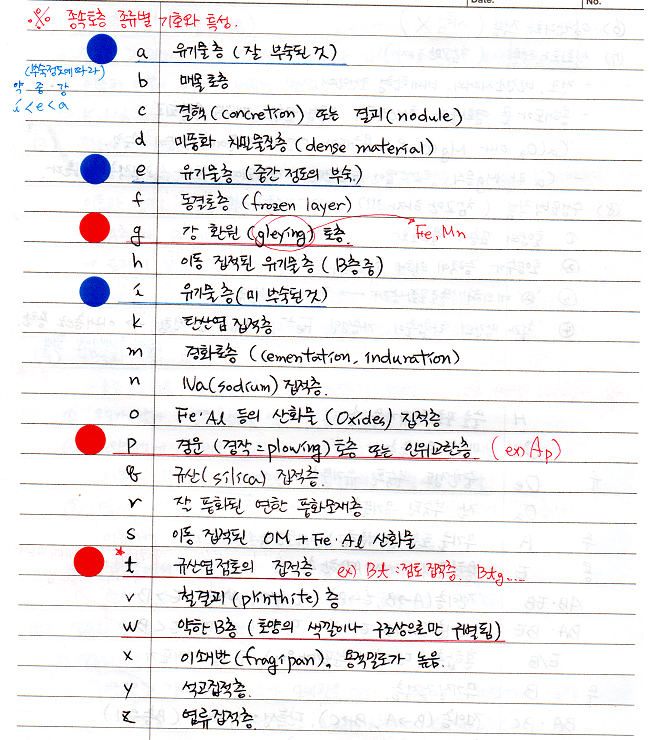 Date. No.
※ 종속토층 종류별 기호와 특성.
a 유기물층 (잘 부숙된것)
(부숙정도에 따라)
약 중 강
i < e < a
b 매몰토층
c 결핵(concretion) 또는 결괴(nodule)
d 미풍화 치밀물질층 (dense material)
e 유기물층 (중간정도의 부숙)
f 동결토층 (frozen layer)
g 강 환원 (gleying) 토층. Fe, Mn
h 이동 집적된 유기물층 (B층중)
i 유기물층(미 부숙된것)
k 탄산염 집적층
m 경화토층 (cementation, induration)
n Na(sodium) 집적층.
o Fe·Al 등의 산화물 (Oxides) 집적층
p 경운 (경작=plowing) 토층 또는 인위교란층 (ex) Ap)
q 규산(silica) 집적층.
r 잘 풍화된 연한 풍화모재층
s 이동 집적된 OM + Fe·Al 산화물
* t 규산염점토의 집적층 ex) Bt : 점토집적층. Btg....
v 철결괴(plinthite) 층
w 약한 B층 (토양의 색깔이나 구조상으로만 구별됨)
x 이쇄반(fragipan), 용적밀도가 높음.
y 석고집적층.
z 염류집적층.